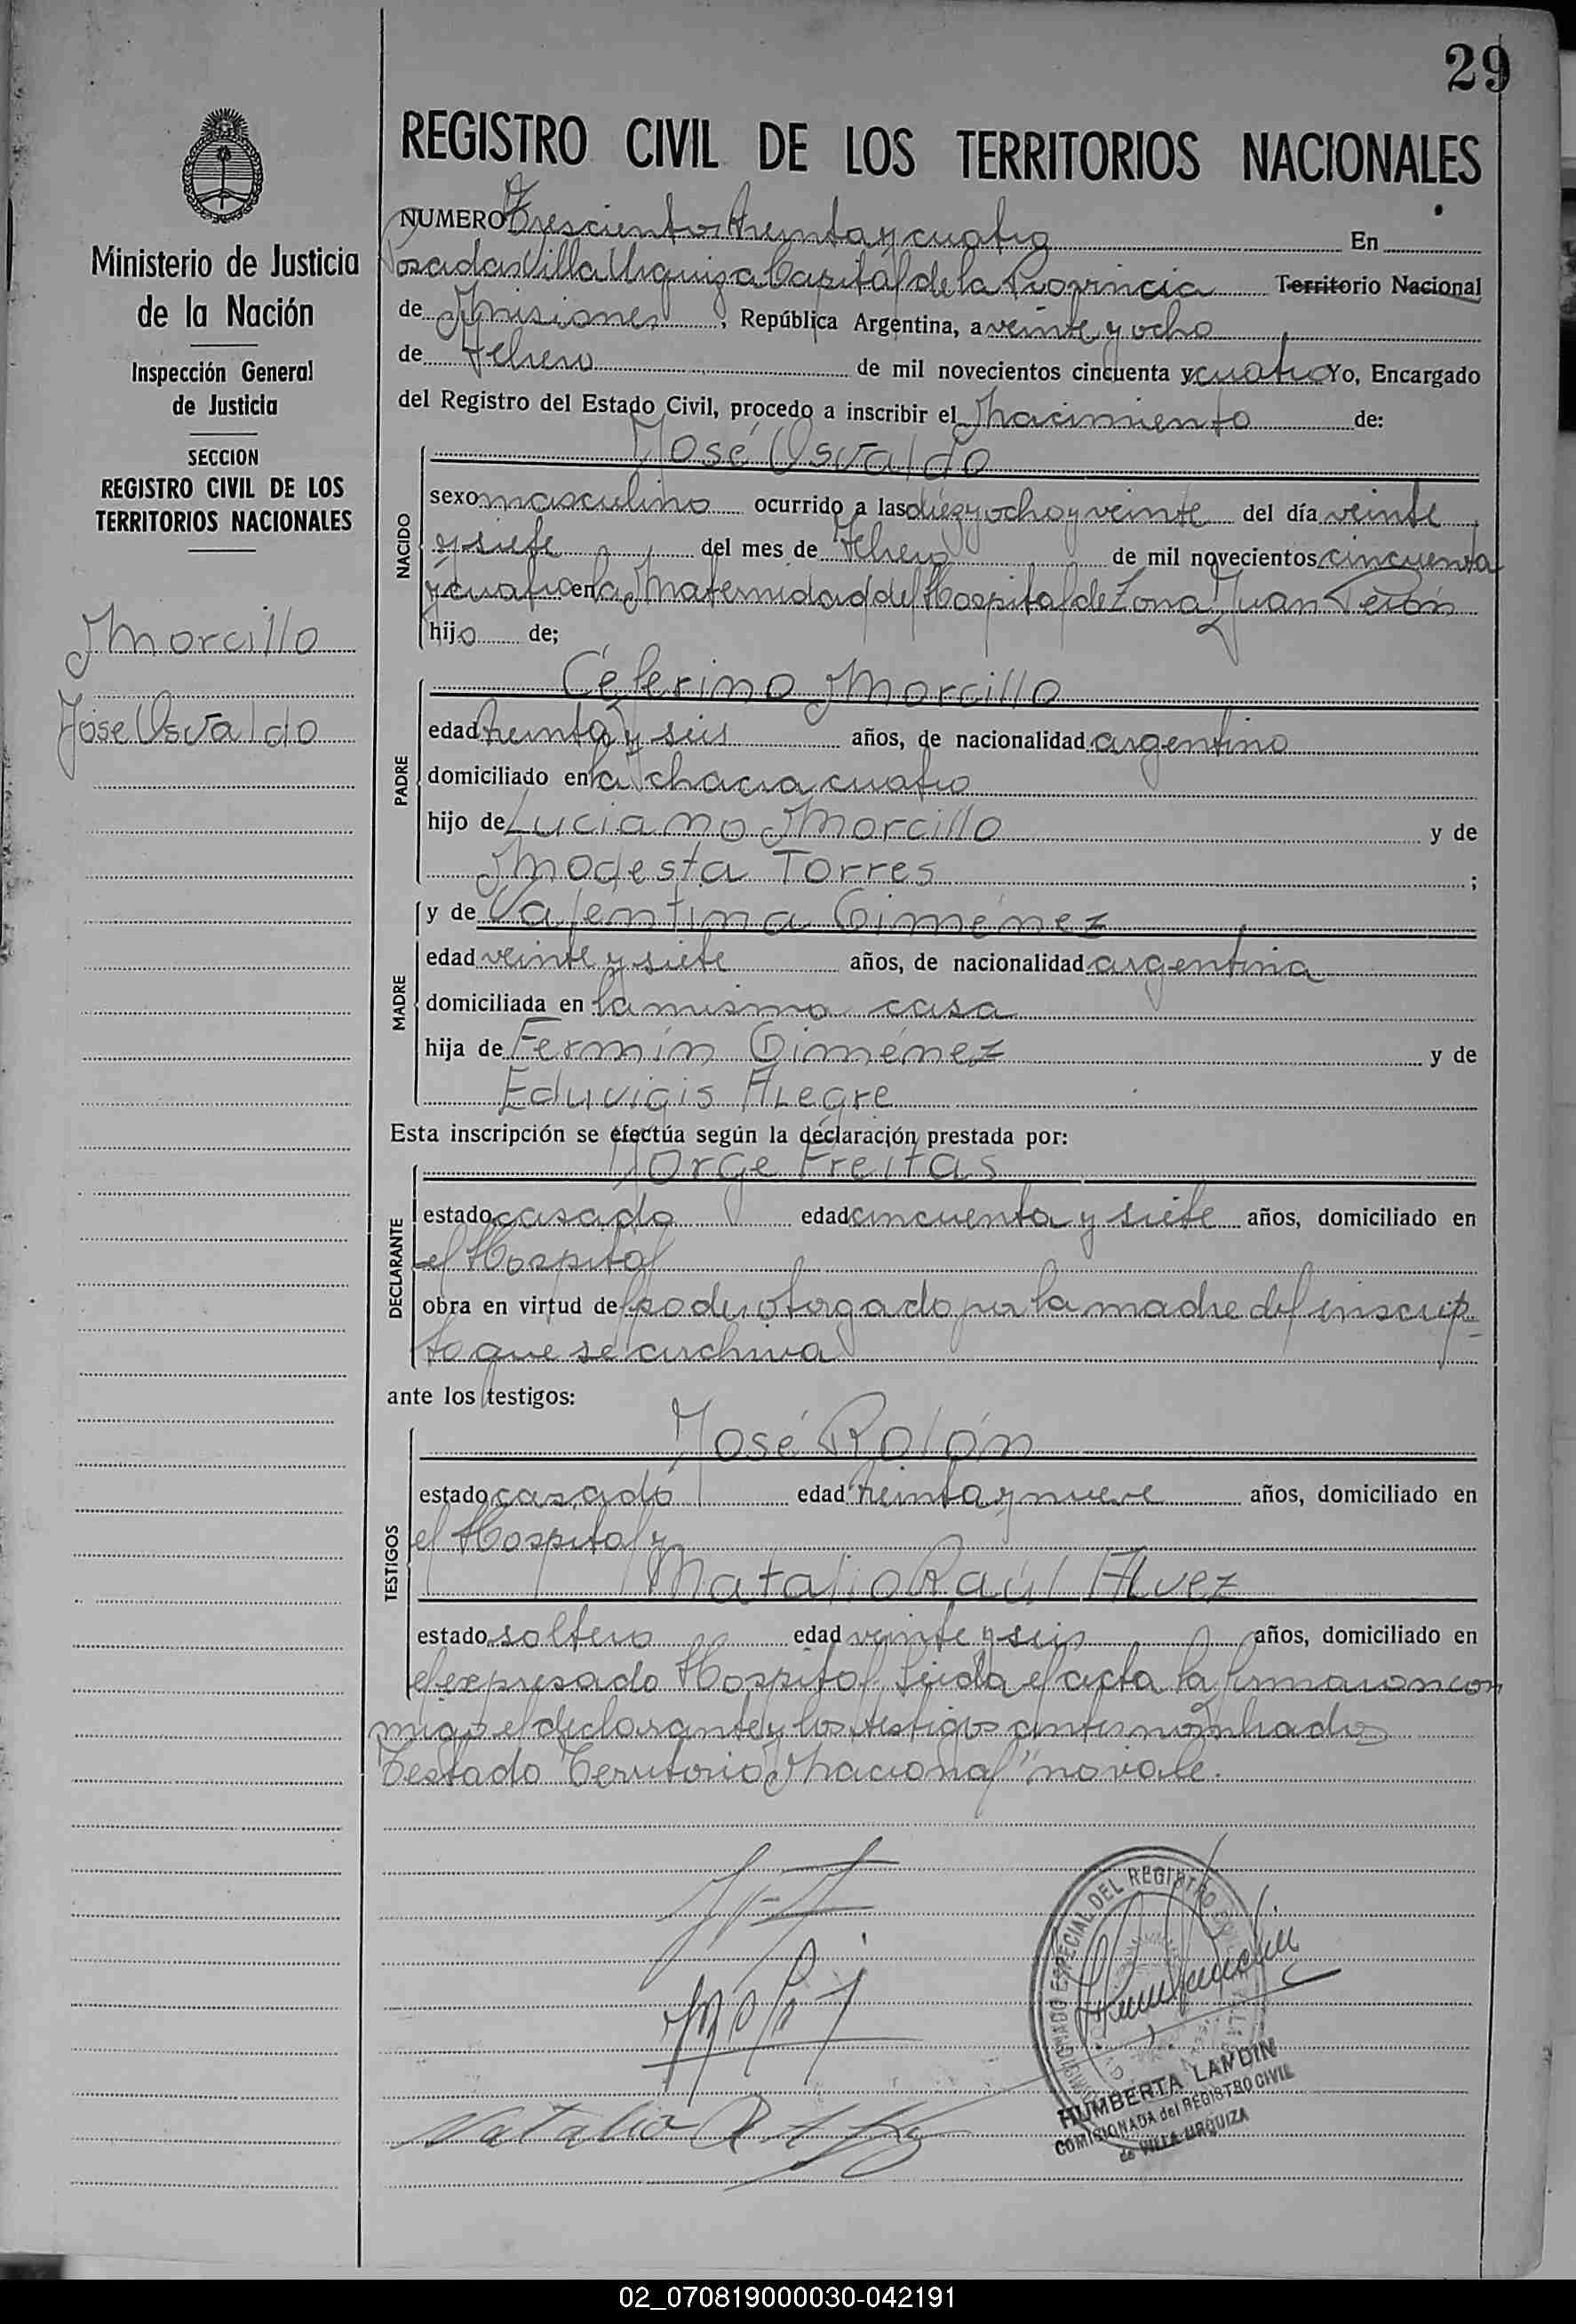 29
Ministerio de Justicia
de la Nación
Inspección General
de Justicia
SECCION
REGISTRO CIVIL DE LOS
TERRITORIOS NACIONALES
Morcillo
José Osvaldo
REGISTRO CIVIL DE LOS TERRITORIOS NACIONALES
NUMERO Trescientos treinta y cuatro En
Posadas Villa Urquiza Capital de la Provincia Territorio Nacional
de Misiones, República Argentina, a veinte y ocho
de Febrero de mil novecientos cincuenta y cuatro Yo, Encargado
del Registro del Estado Civil, procedo a inscribir el Nacimiento de:
NACIDO
José Osvaldo
sexo masculino ocurrido a las diez y ocho y veinte del día veinte
y siete del mes de Febrero de mil novecientos cincuenta
y cuatro en la Maternidad del Hospital de Zona Juan Perón
hijo de;
PADRE
Céferino Morcillo
edad treinta y seis años, de nacionalidad argentino
domiciliado en la chacra cuatro
hijo de Luciano Morcillo y de
Modesta Torres ;
MADRE
y de Valentina Giménez
edad veinte y siete años, de nacionalidad argentina
domiciliada en la misma casa
hija de Fermín Giménez y de
Eduvigis Alegre
Esta inscripción se efectúa según la declaración prestada por:
DECLARANTE
Jorge Freitas
estado casado edad cincuenta y siete años, domiciliado en
el Hospital
obra en virtud del poder otorgado por la madre del inscrip-
to que se archiva
ante los testigos:
TESTIGOS
José Rolón
estado casado edad treinta y nueve años, domiciliado en
el Hospital y
Natalio Raúl Alvez
estado soltero edad veinte y seis años, domiciliado en
el expresado Hospital. Leída el acta la firmaron con
migo el declarante y los testigos antes nombrados
Testado "Territorio Nacional" no vale.
Natalio R.
ESPECIAL DEL REGISTRO CIVIL
HUMBERTA LANDIN
COMISIONADA del REGISTRO CIVIL
de VILLA URQUIZA
02_070819000030-042191